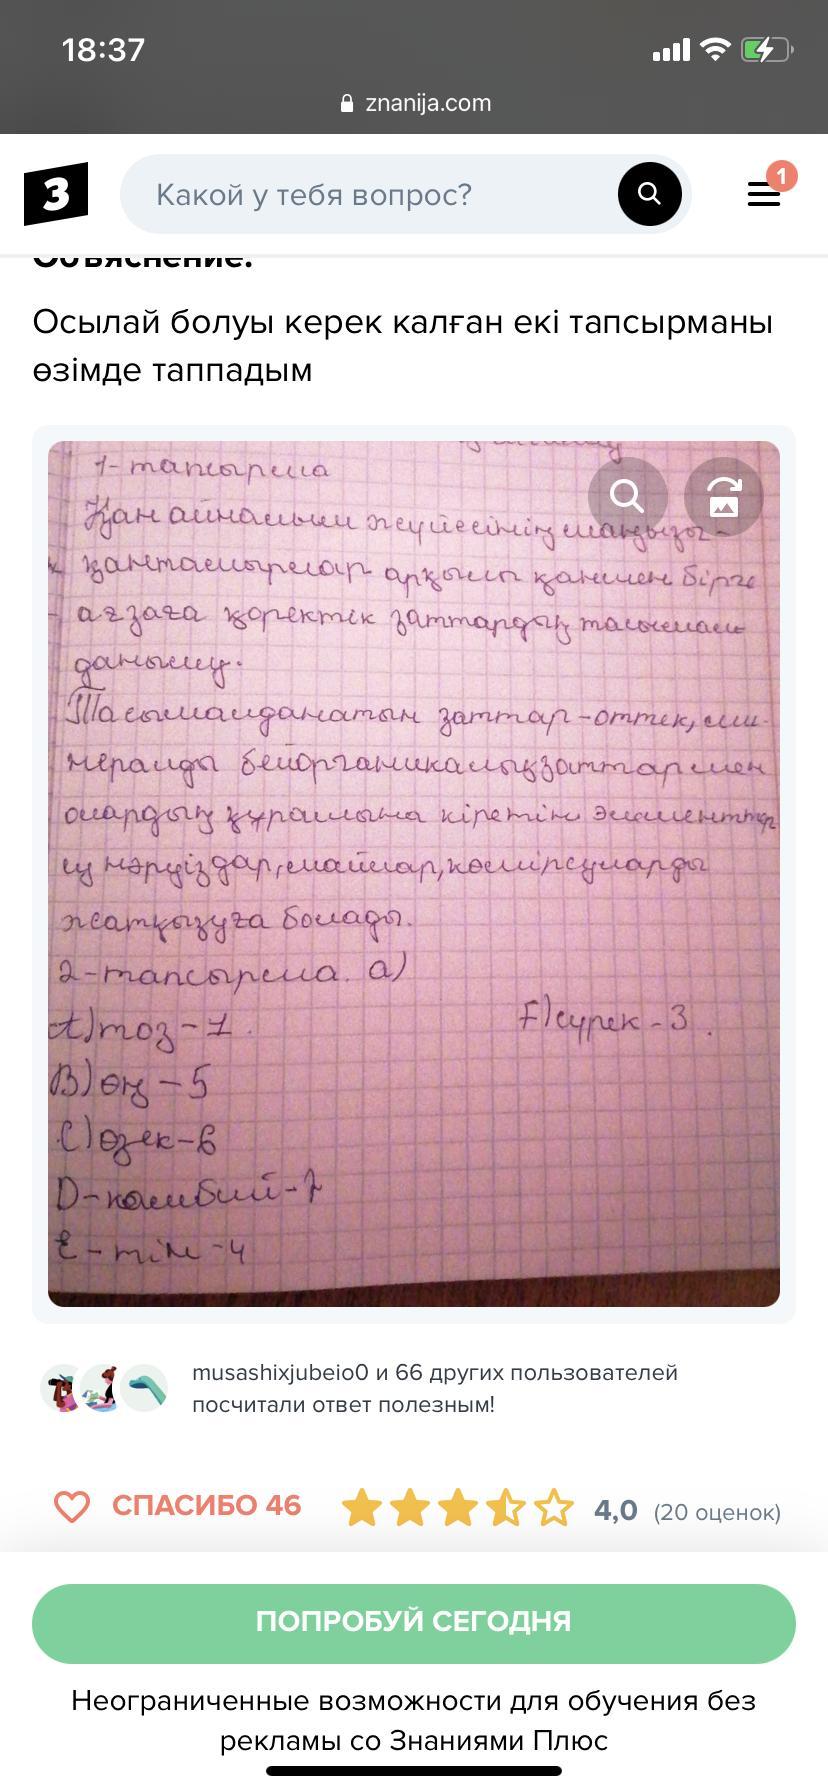 18:37
znanija.com
Какой у тебя вопрос?
1
Объяснение:
Осылай болуы керек калған екі тапсырманы
өзімде таппадым
1-тапсырма
Қан айналым жүйесінің маңызы-
қантамырлар арқылы қанмен бірге
ағзаға қоректік заттардың тасымал
данылу.
Тасымалданатын заттар-оттек, ми-
нералды бейорганикалық заттар мен
олардың құрамына кіретін элементтер
су нәруіздар, майлар, көмірсуларды
жатқызуға болады.
2-тапсырма. а)
A) тоз-1.
F) сүрек-3.
B) өң-5
C) өзек-6
D-камбий-7
E-тін-4
musashixjubeio0 и 66 других пользователей
посчитали ответ полезным!
СПАСИБО 46
4,0 (20 оценок)
ПОПРОБУЙ СЕГОДНЯ
Неограниченные возможности для обучения без
рекламы со Знаниями Плюс